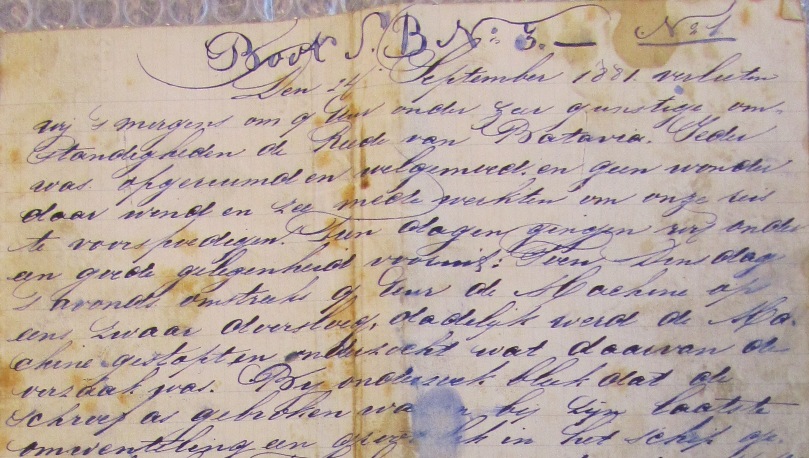 Boot S. B. N: 3. — No 1
Den 24 September 1881. verlieten
wij 's mergens om 9 Uur onder zeer gunstige om-
standigheden de Reede van Batavia. Ieder
was opgeruimd en welgemoed. en geen wonder
daar wend en zee mede werkten om onze reis
te voorspoedigen. Tien dagen gingen wij onder
an goede gelegenheid vooruit: Toen Dinsdag
's avonds omstreeks 9 Uur de Machine op
eens zwaar doorsloeg, dadelijk werd de Ma-
chine gestopt en onderzocht wat daarvan de
oorzaak was. Bij onderzoek bleek dat de
schroef as gebroken was bij zijn laatste
omwenteling en in het schip op-